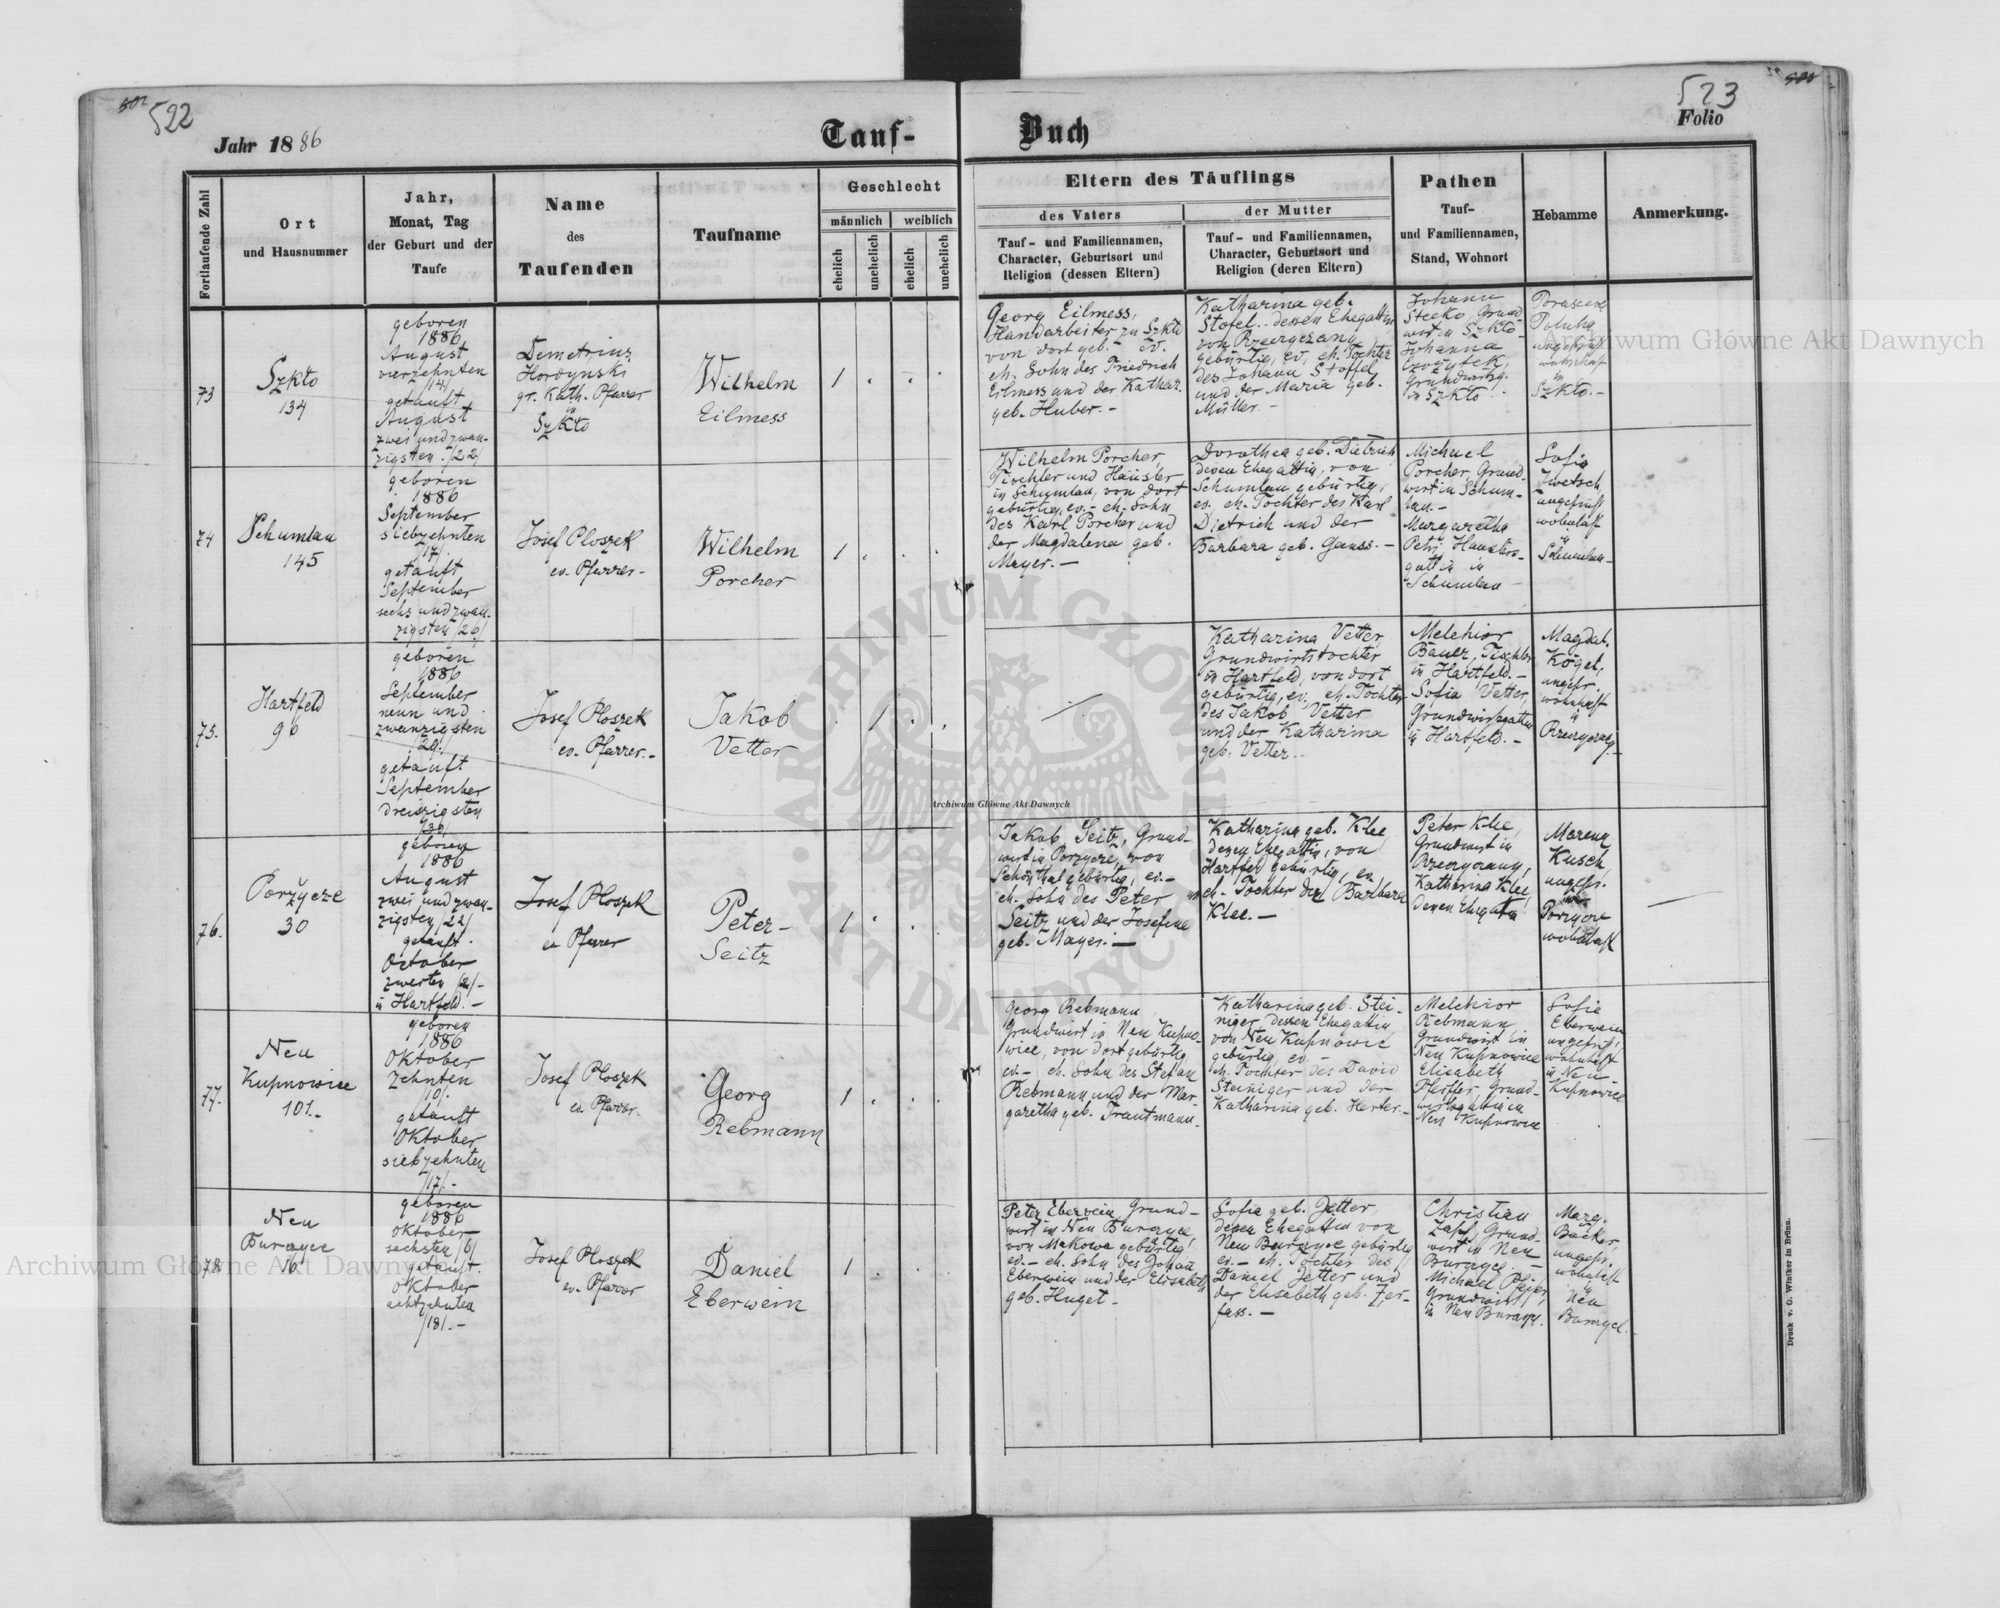 522
523
Jahr 1886
Tauf-
Buch
Folio
Fortlaufende Zahl
Ort
und Hausnummer
Jahr,
Monat, Tag
der Geburt und der
Taufe
Name
des
Taufenden
Taufname
Geschlecht
männlich
weiblich
ehelich
unehelich
ehelich
unehelich
Eltern des Täuflings
des Vaters
Tauf- und Familiennamen,
Character, Geburtsort und
Religion (dessen Eltern)
der Mutter
Tauf- und Familiennamen,
Character, Geburtsort und
Religion (deren Eltern)
Pathen
Tauf-
und Familiennamen,
Stand, Wohnort
Hebamme
Anmerkung.
73
Szkło
134
geboren
1886
August
vierzehnten
/14/
getauft
August
zwei und zwan-
zigsten. /22/
Demetrius
Hordynski
gr. Kath. Pfarrer
in
Szkło
Wilhelm
Eilmess
1 . . .
Georg Eilmess,
Handarbeiter zu Szkło
von dort geb. - ev.
eh. Sohn des Friedrich
Eilmess und der Kathar.
geb. Huber. -
Katharina geb.
dessen Ehegattin
von
gebürtig, ev. eh. Tochter
des Johann Stoffel
und der Maria geb.
Müller. -
Johann
Grund-
wirt in Szkło
Johanna
in Szkło
wohnhaft
in
Szkło. -
74
Schumlau
145
geboren
1886
September
siebzehnten
/17/
getauft
September
sechs und zwan-
zigsten /26/
Josef Ploszek
ev. Pfarrer -
Wilhelm
Porcher
1 . . .
Wilhelm Porcher,
Tischler und Häusler
in Schumlau, von dort
gebürtig, ev. - eh. Sohn
des Karl Porcher und
der Magdalena geb.
Mayer. -
Dorothea geb. Dietrich
dessen Ehegattin, von
Schumlau gebürtig,
ev. eh. Tochter des Karl
Dietrich und der
Barbara geb. Gauss. -
Michael
Porcher, Grund-
wirt in Schum-
lau. -
Margaretha
Petri, Häuslers-
gattin in
Schumlau -
Sofia
ungeprüft
wohnhaft
in
Schumlau -
75.
Hartfeld
96
geboren
1886
September
neun und
zwanzigsten
/29/
getauft
September
dreizigsten
/30/
Josef Ploszek
ev. Pfarrer. -
Jakob
Vetter
. 1 . .
Katharina Vetter,
Grundwirtstochter
in Hartfeld, von dort
gebürtig, ev. eh. Tochter
des Jakob Vetter
und der Katharina
geb. Vetter. -
Melchior
Bauer, Tischler
in Hartfeld. -
Sofia Vetter,
Grundwirtsgattin
in Hartfeld. -
Magdal.
Kögel,
ungepr.
wohnhaft
in
76.
Porzycze
30
geboren
1886
August
zwei und zwan-
zigsten /22/
getauft.
October
zweiten /2/ -
in Hartfeld. -
Josef Ploszek
ev. Pfarrer
Peter -
Seitz
1 . . .
Jakob Seitz, Grund-
wirt in Porzycze, von
Schönthal gebürtig, ev. -
eh. Sohn des Peter
Seitz und der Josefine
geb. Mayer. -
Katharina geb. Klee
dessen Ehegattin, von
Hartfeld gebürtig, ev.
eh. Tochter der Barbara
Klee. -
Peter Klee,
Grundwirt in
Katharina Klee,
dessen Ehegattin
Kusch,
ungepr.
in
Porzycze
wohnhaft
77.
Neu
Kupnowice
101. -
geboren
1886
Oktober
zehnten
/10/.
getauft
Oktober
siebzehnten
/17/. -
Josef Ploszek
ev. Pfarrer.
Georg
Rebmann
1 . . .
Georg Rebmann,
Grundwirt in Neu Kupno-
wice, von dort gebürtig,
ev. - eh. Sohn des Stefan
Rebmann und der Mar-
garetha geb. Trautmann.
Katharina geb. Stei-
niger, dessen Ehegattin
von Neu Kupnowice
gebürtig, ev. -
eh. Tochter des David
Steiniger und der
Katharina geb. Herter. -
Melchior
Rebmann,
Grundwirt in
Neu Kupnowice
Elisabeth
Pfeiffer, Grund-
wirtsgattin in
Neu Kupnowice
Sofie
Eberwein
ungeprüft,
wohnhaft
in Neu-
Kupnowice
78
Neu
Burczyce
16
geboren
1886
Oktober
sechsten /6/
getauft.
Oktober
achtzehnten
/18/. -
Josef Ploszek
ev. Pfarrer
Daniel
Eberwein
1 . . .
Peter Eberwein, Grund-
wirt in Neu Burczyce,
von Makowa gebürtig,
ev. - eh. Sohn des Johann
Eberwein und der Elisabeth
geb. Huget. -
Sofia geb. Jetter,
dessen Ehegattin von
Neu Burczyce gebürtig
ev. - eh. Tochter des
Daniel Jetter und
der Elisabeth geb. Zer-
fass. -
Christian
Zapf, Grund-
wirt in Neu
Burczyce. -
Michael
Grundwirt
in Neu Burczyce.
Marg.
Bäcker,
ungepr.
wohnhaft
in
Neu
Burczyce. -
Druck v. G. Winiker in Brünn.
Archiwum Główne Akt Dawnych
Archiwum Główne Akt Dawnych
Archiwum Główne Akt Dawnych
ARCHIWUM GŁÓWNE AKT DAWNYCH